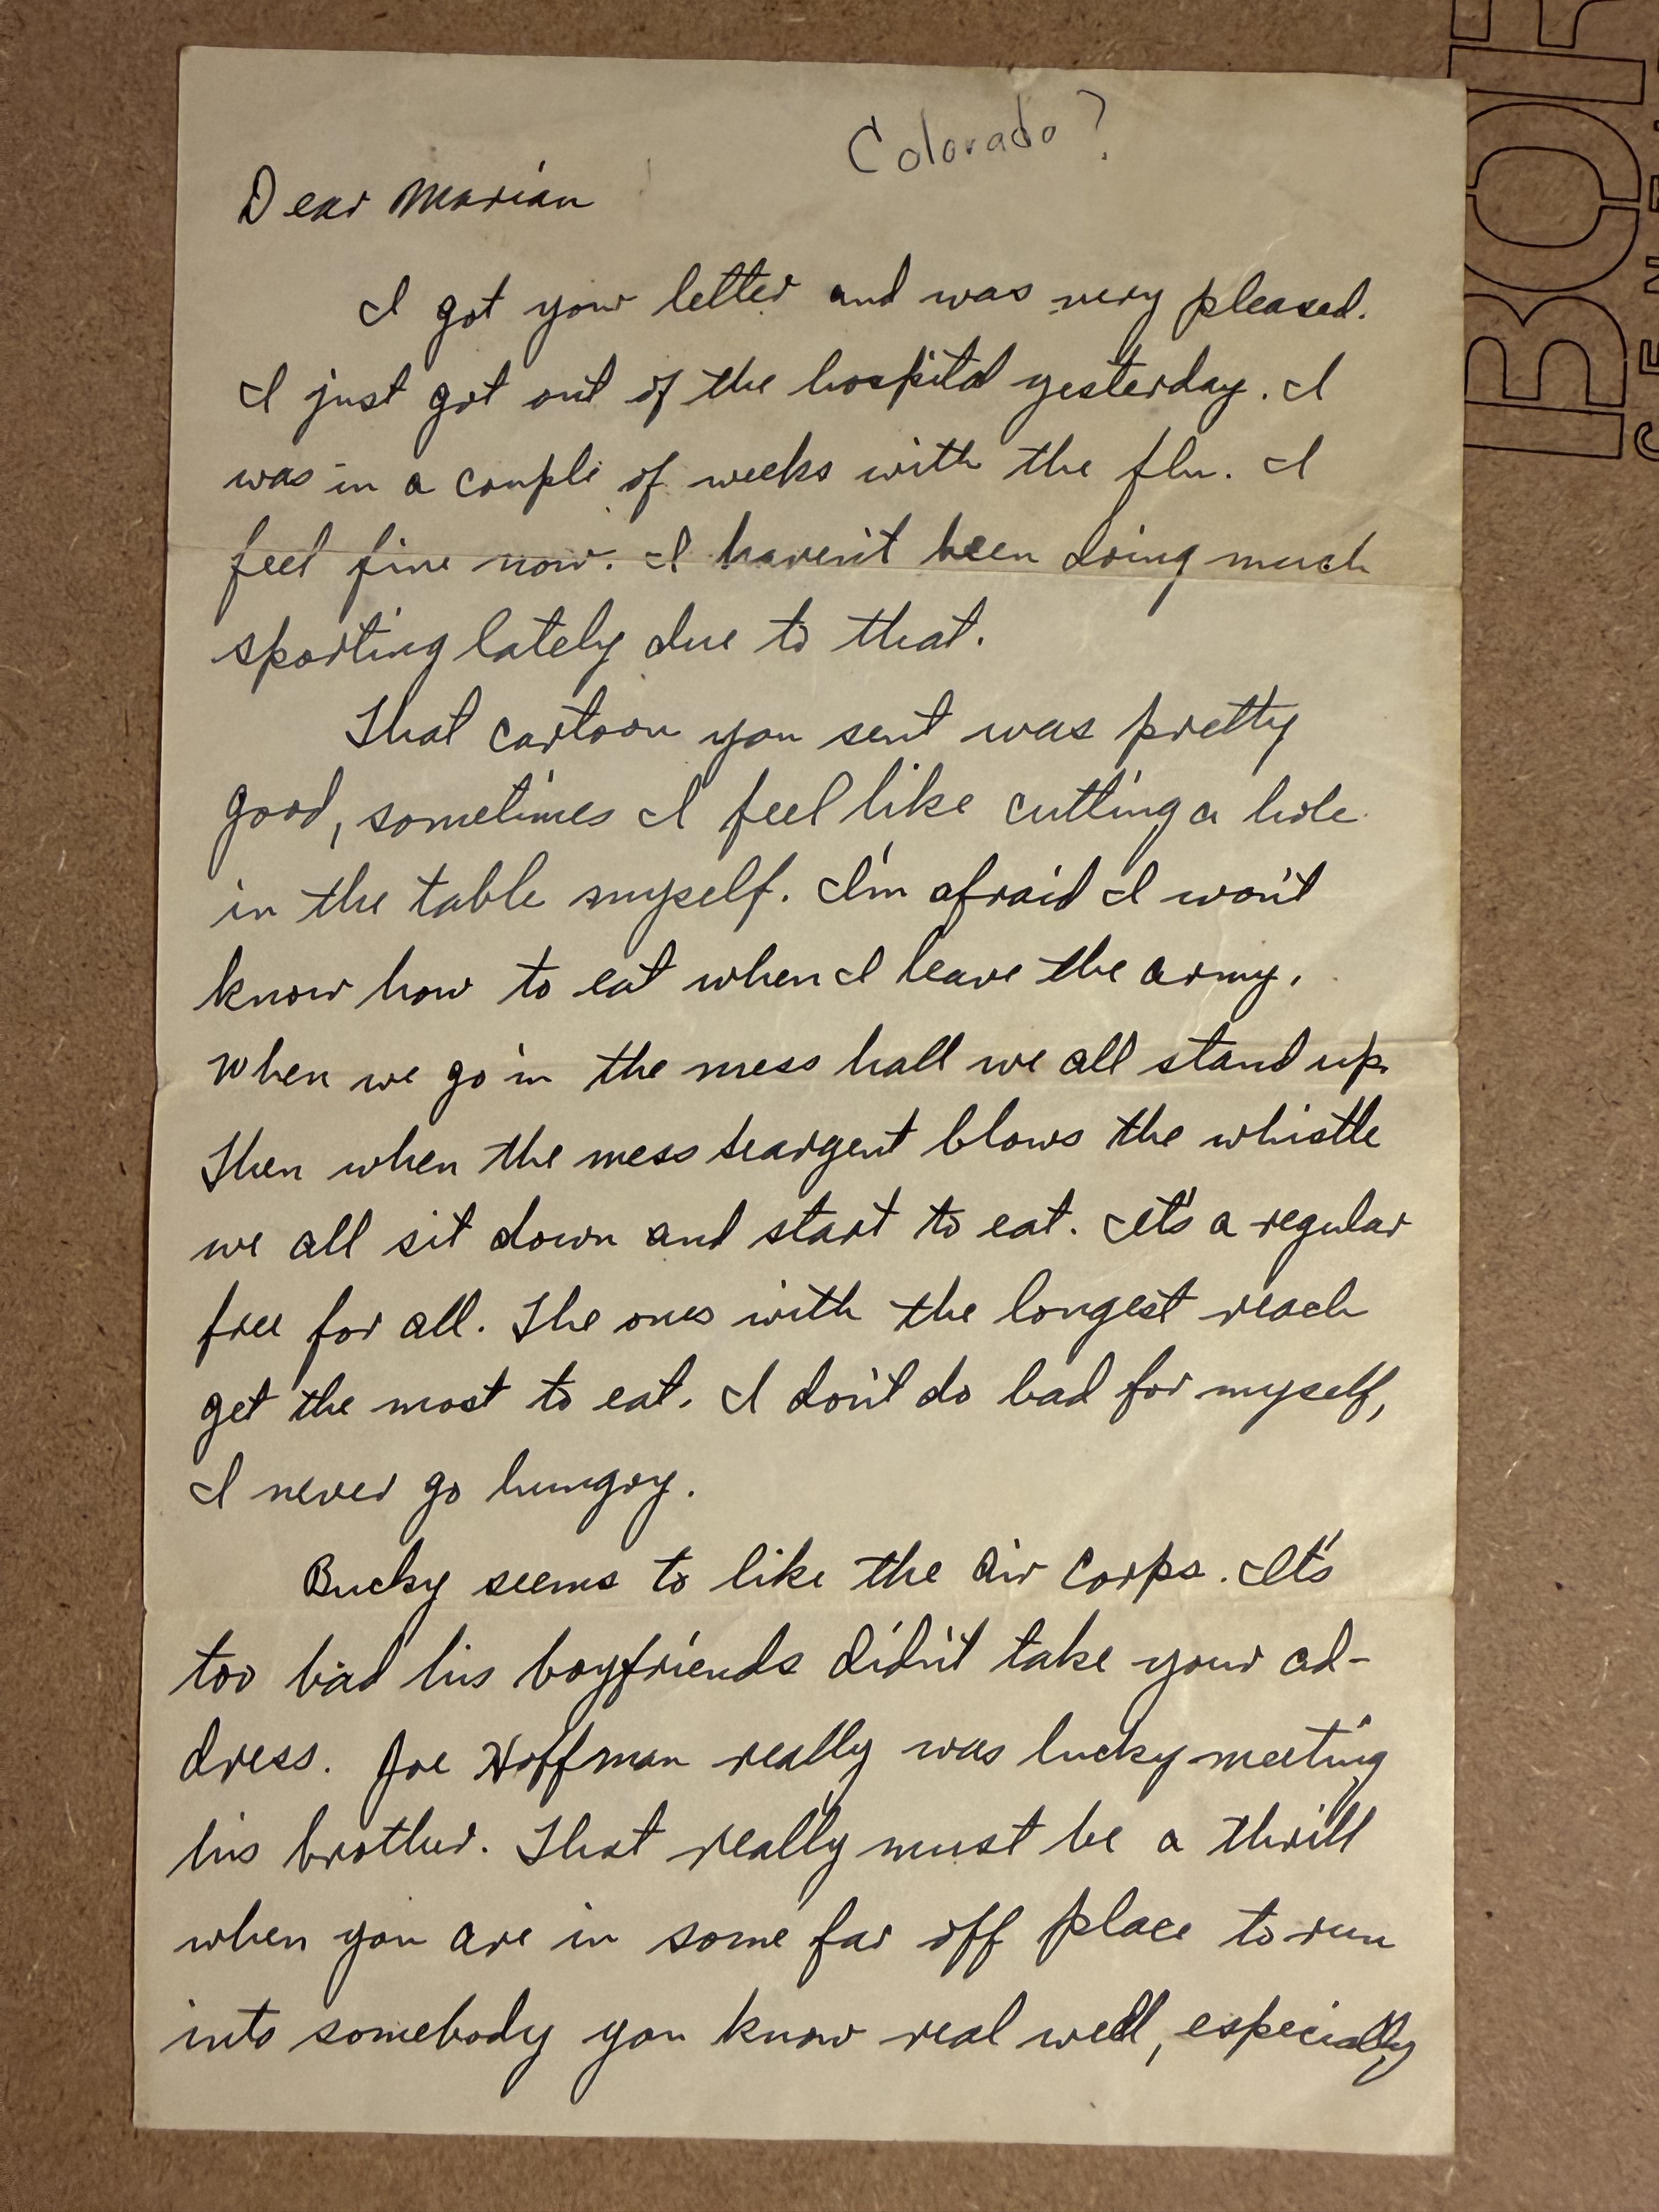 Colorado?
Dear Marian
I got your letter and was very pleased.
I just got out of the hospital yesterday. I
was in a couple of weeks with the flu. I
feel fine now. I haven't been doing much
sporting lately due to that.
That cartoon you sent was pretty
good, sometimes I feel like cutting a hole
in the table myself. I'm afraid I won't
know how to eat when I leave the army.
When we go in the mess hall we all stand up.
Then when the mess seargent blows the whistle
we all sit down and start to eat. It's a regular
free for all. The ones with the longest reach
get the most to eat. I don't do bad for myself,
I never go hungry.
Bucky seems to like the Air Corps. It's
too bad his boyfriends didn't take your ad-
dress. Joe Hoffman really was lucky meeting
his brother. That really must be a thrill
when you are in some far off place to run
into somebody you know real well, especially